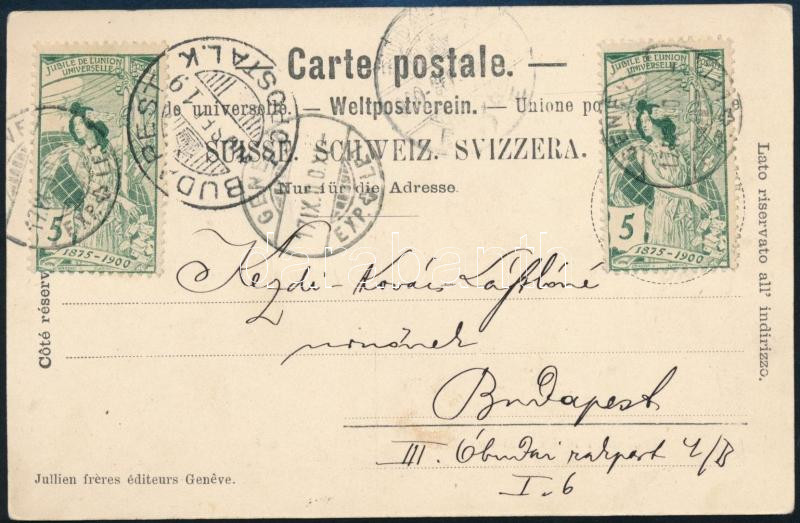 JUBILÉ DE L'UNION
UNIVERSELLE
5
1875-1900
JUBILÉ DE L'UNION
UNIVERSELLE
5
1875-1900
Carte postale. —
de universelle. — Weltpostverein. — Unione po
SUISSE. SCHWEIZ. SVIZZERA.
Nur für die Adresse.
BUDAPEST
GENÈVE
17.IX.00.
EXP. LE
Kezdi-Kovács Lászlóné
Budapest
III. Óbudai rakpart 4/B
I. 6
Côté réserv
Lato riservato all' indirizzo.
Jullien frères éditeurs Genêve.
darabanth